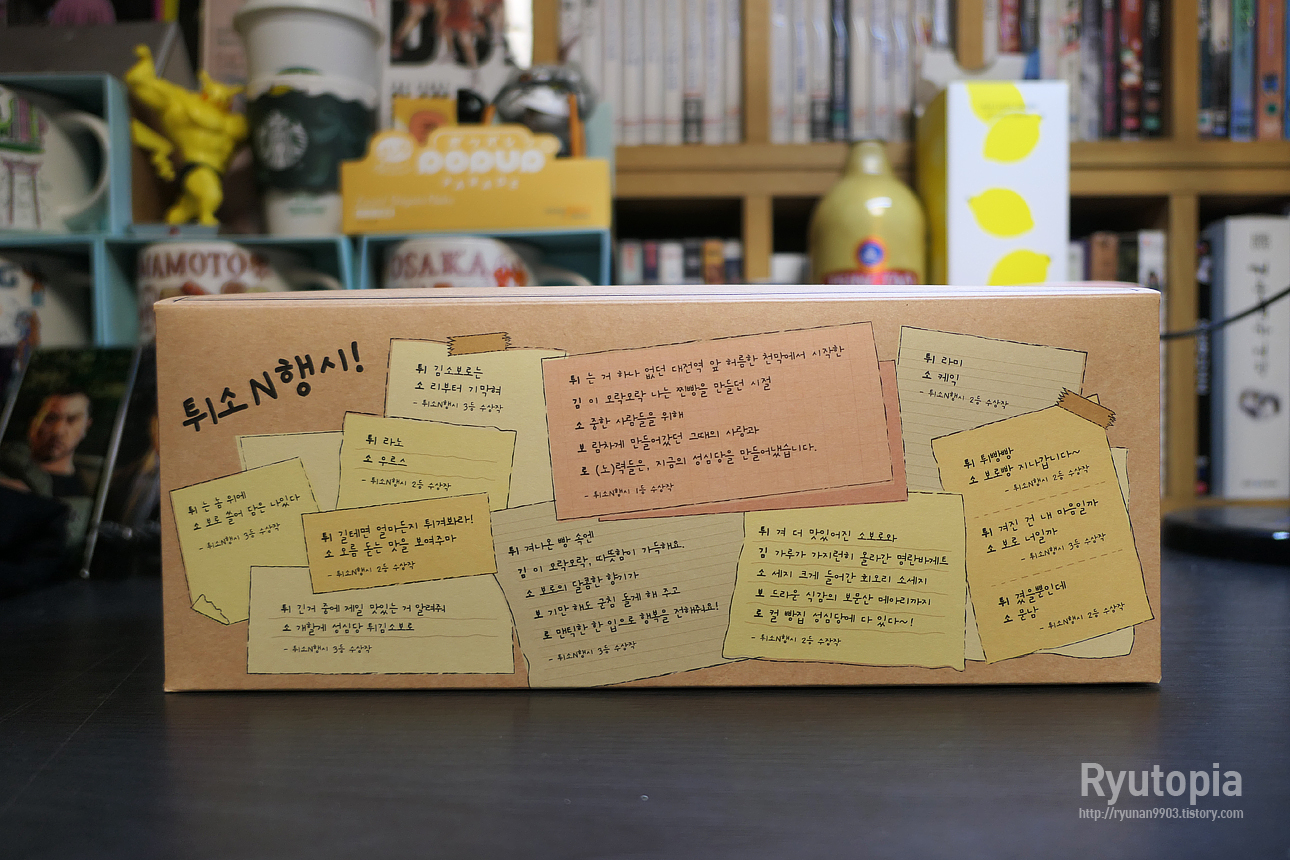 POPUP
MAMOTO
OSAKA
튀소N행시!
튀 김소보로는
소 리부터 기막혀
- 튀소N행시 3등 수상작
튀 는 거 하나 없던 대전역 앞 허름한 천막에서 시작한
김 이 모락모락 나는 찐빵을 만들던 시절
소 중한 사람들을 위해
보 람차게 만들어갔던 그때의 사랑과
로 (노)력들은, 지금의 성심당을 만들어냈습니다.
- 튀소N행시 1등 수상작
튀 라미
소 케익
- 튀소N행시 2등 수상작
튀 라노
소 우르스
- 튀소N행시 2등 수상작
튀 는 놈 위에
소 보로 쓸어 담은 나있다
- 튀소N행시 3등 수상작
튀 길테면 얼마든지 튀겨봐라!
소 오름 돋는 맛을 보여주마
- 튀소N행시 2등 수상작
튀 긴거 중에 제일 맛있는 거 알려줘
소 개할게 성심당 튀김소보로
- 튀소N행시 3등 수상작
튀 겨나온 빵 속엔
김 이 모락모락, 따뜻함이 가득해요.
소 보로의 달콤한 향기가
보 기만 해도 군침 돌게 해 주고
로 맨틱한 한 입으로 행복을 전해줘요!
- 튀소N행시 3등 수상작
튀 겨 더 맛있어진 소보로와
김 가루가 가지런히 올라간 명란바게트
소 세지 크게 들어간 회오리 소세지
보 드라운 식감의 보문산 메아리까지
로 컬 빵집 성심당에 다 있다~!
- 튀소N행시 2등 수상작
튀 튀빵빵
소 보로빵 지나갑니다~
- 튀소N행시 2등 수상작
튀 겨진 건 내 마음일까
소 보로 너일까
- 튀소N행시 3등 수상작
튀 겼을뿐인데
소 문남
- 튀소N행시 2등 수상작
Ryutopia
http://ryunan9903.tistory.com